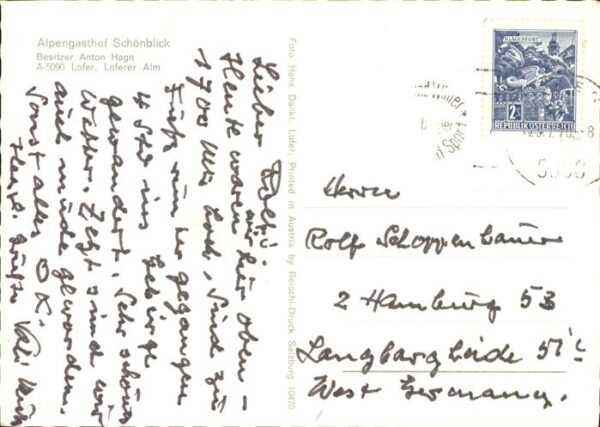 Alpengasthof Schönblick
Besitzer Anton Hagn
A-5090 Lofer, Loferer Alm
Lieber Rolf!
Heute waren wir hier oben –
1700 Mtr hoch. Sind zu
Fuß
4 Std ins Gebirge
gewandert. Sehr schönes
Wetter. Jetzt sind wir
auch müde geworden.
Sonst alles OK.
Herzl. Grüße
Foto Hans Dankl, Lofer, Printed in Austria by Reischl-Druck Salzburg 10470
KLAGENFURT
2S
REPUBLIK ÖSTERREICH
Herrn
Rolf Schoppenhauer
2 Hamburg 53
Langbargheide 51 c
West Germany.